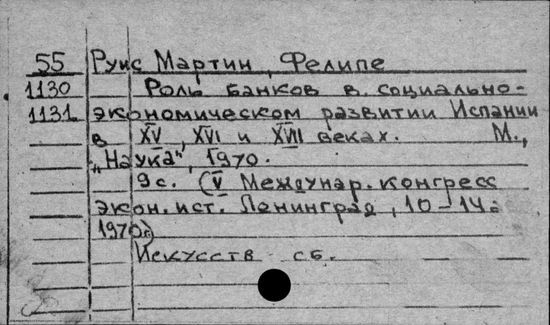 55 Руис Мартин, Фелипе
1130 Роль банков в социально-
1131 экономическом развитии Испании
в XV, XVI и XVII веках. М.,
"Наука", 1970.
9с. (V Междунар. конгресс
экон. ист. Ленинград, 10-14.
1970г)
Искусств сб.